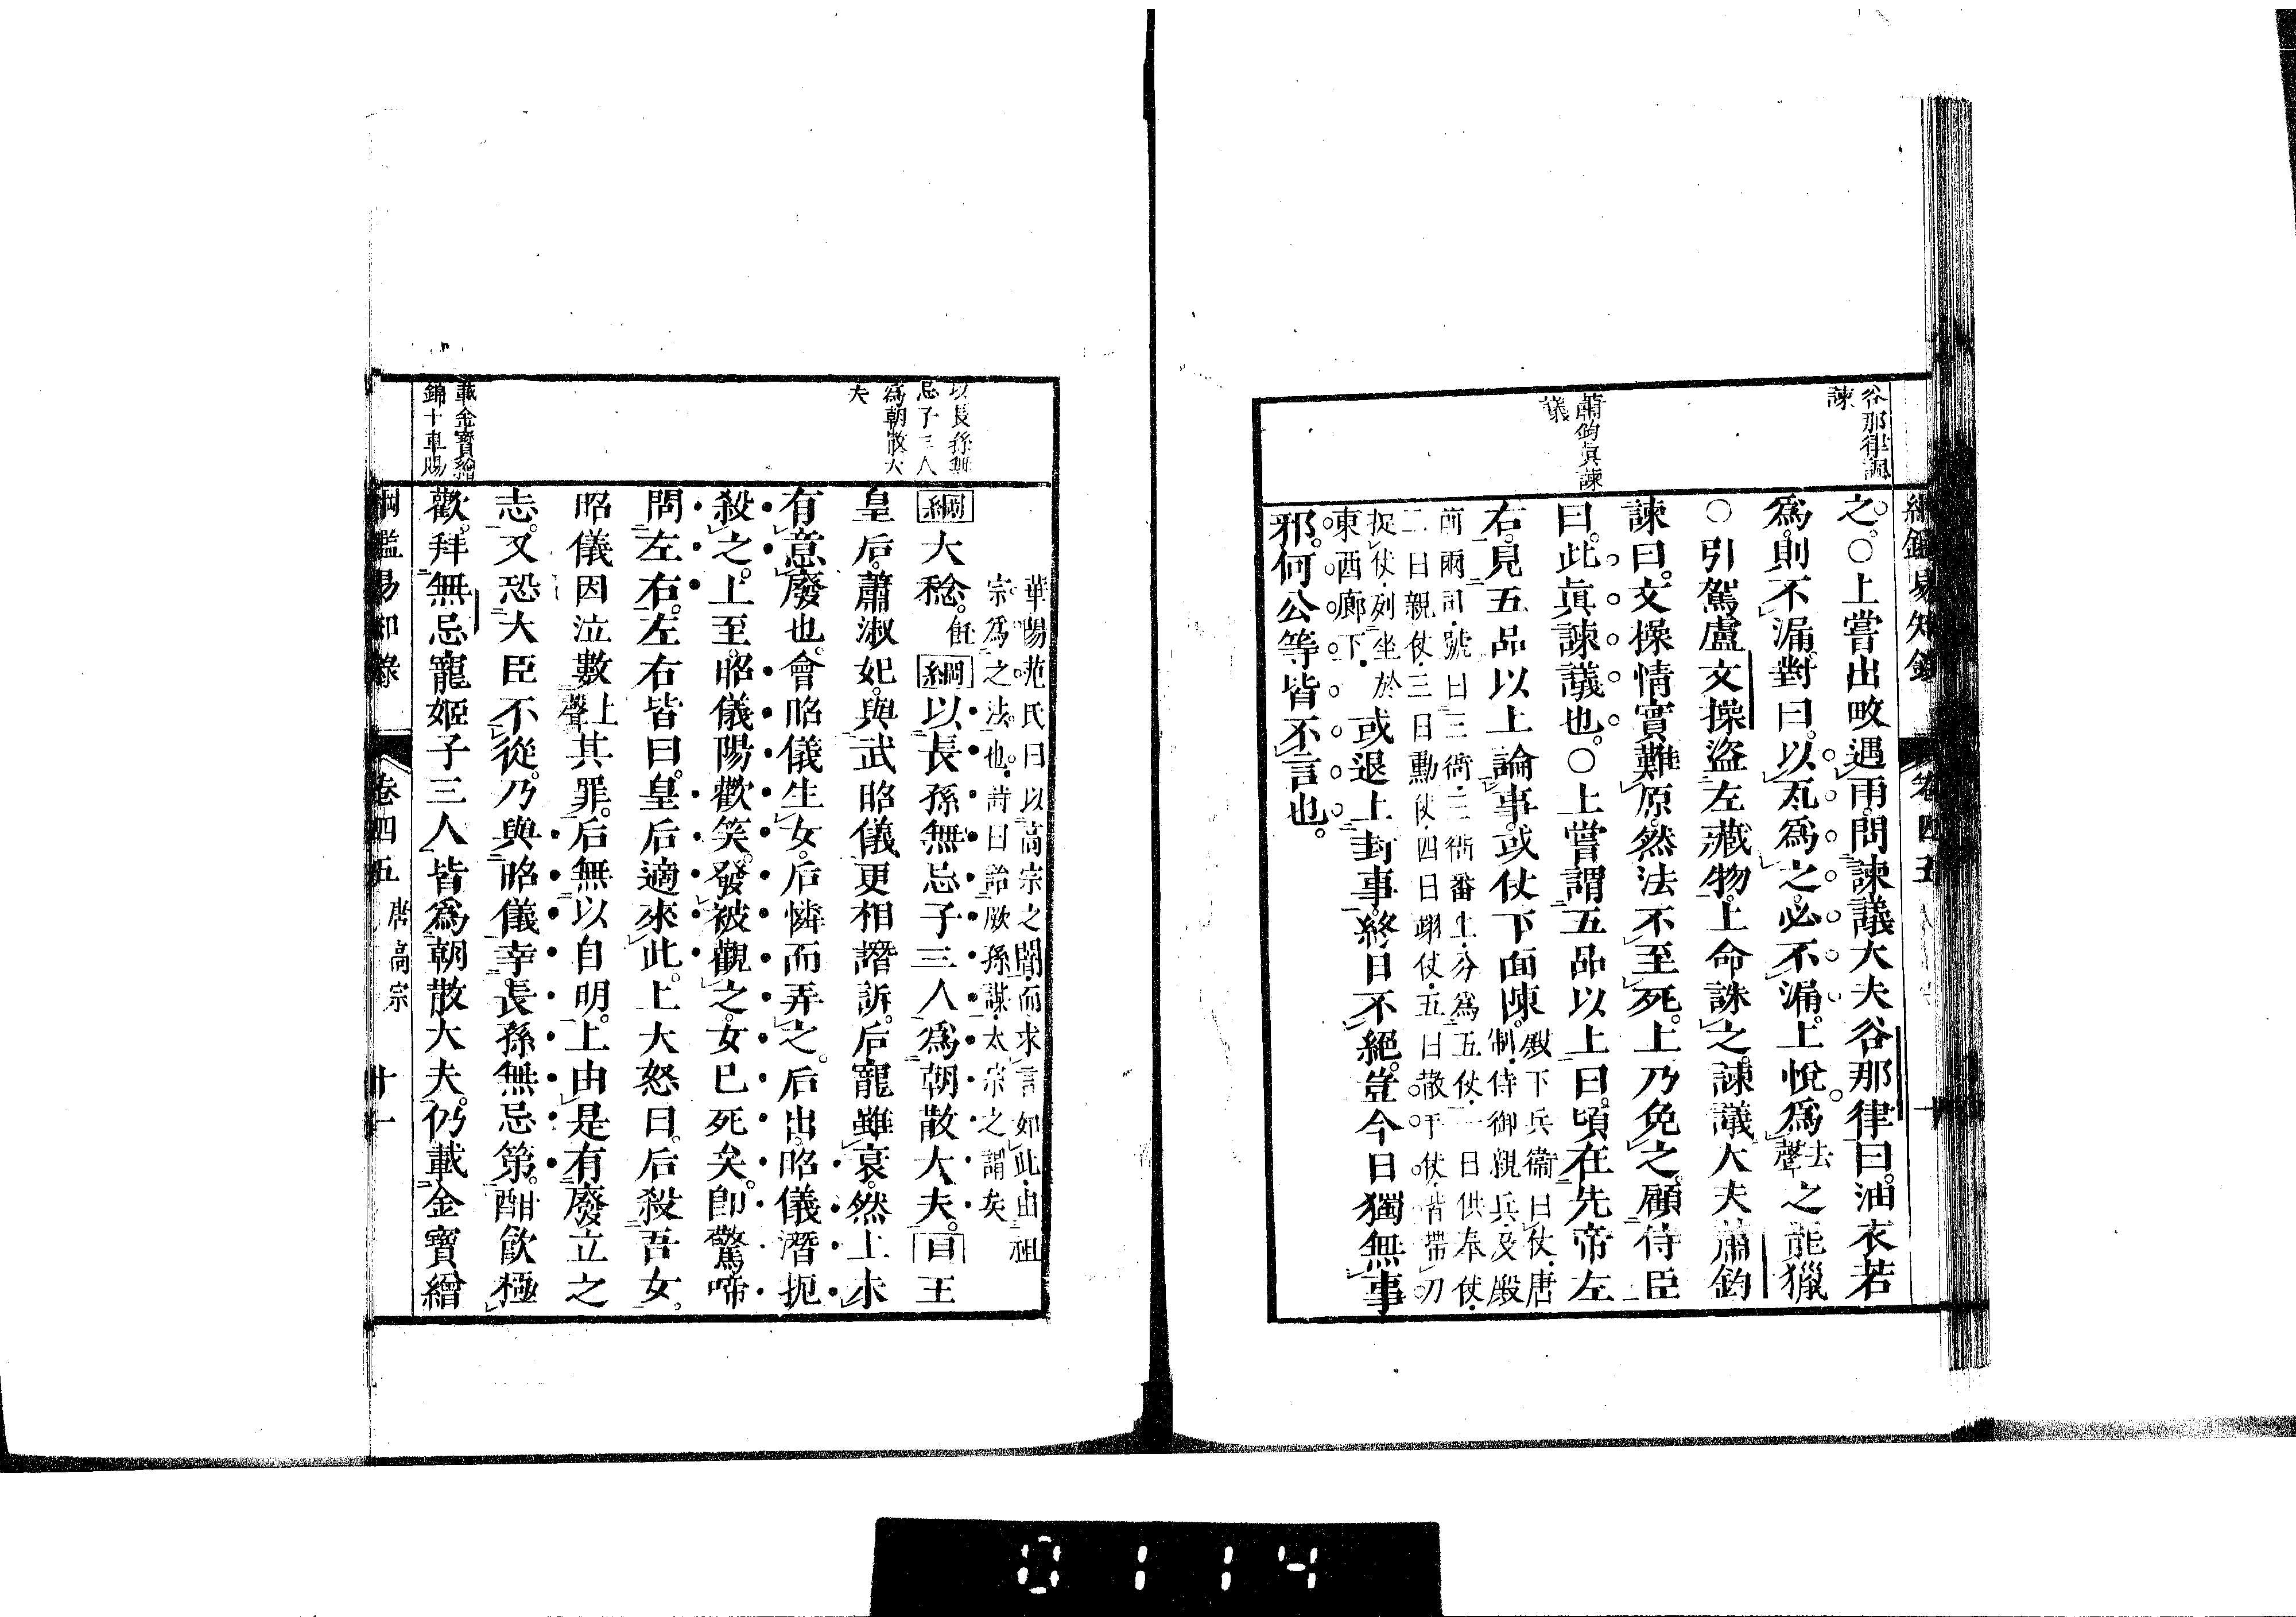 綱鑑易知錄　卷四五
谷那律諷
諫
蕭鈞眞諫
議
之。○上嘗出畋遇雨。問諫議大夫谷那律曰。油衣若
爲。則不漏。對曰。以瓦爲之。必不漏。上悅。爲去聲之罷獵
○引駕盧文操盜左藏物。上命誅之。諫議大夫蕭鈞
諫曰。文操情實難原。然法不至死。上乃免之。顧侍臣
曰。此眞諫議也。○上嘗謂五品以上曰。頃在先帝左
右。見五品以上論事。或仗下面陳。殿下兵衞曰仗。唐
制。侍御親兵。及殿
前兩司。號曰三衞。三衞番上。分爲五仗。一曰供奉仗。
二曰親仗。三曰勳仗。四曰翊仗。五曰散手仗。皆帶刀
捉仗。列坐於
東西廊下。
或退上封事。終日不絕。豈今日獨無事
邪。何公等皆不言也。
以長孫無
忌子三人
爲朝散大
夫
載金寶繒
錦十車賜
華陽范氏曰。以高宗之闇。而求言如此。由祖
宗爲之法也。詩曰。詒厥孫謀。太宗之謂矣
綱大稔。飪綱以長孫無忌子三人爲朝散大夫。目王
皇后。蕭淑妃。與武昭儀更相譖訴。后寵雖衰。然上未
有意廢也。會昭儀生女。后憐而弄之。后出。昭儀潛扼
殺之。上至。昭儀陽歡笑。發被觀之。女已死矣。卽驚啼
問左右。左右皆曰。皇后適來此。上大怒曰。后殺吾女。
昭儀因泣數上聲其罪。后無以自明。上由是有廢立之
志。又恐大臣不從。乃與昭儀幸長孫無忌第。酣飮極
歡。拜無忌寵姬子三人皆爲朝散大夫。仍載金寶繒
綱鑑易知錄　卷四五　唐高宗　十一
0114